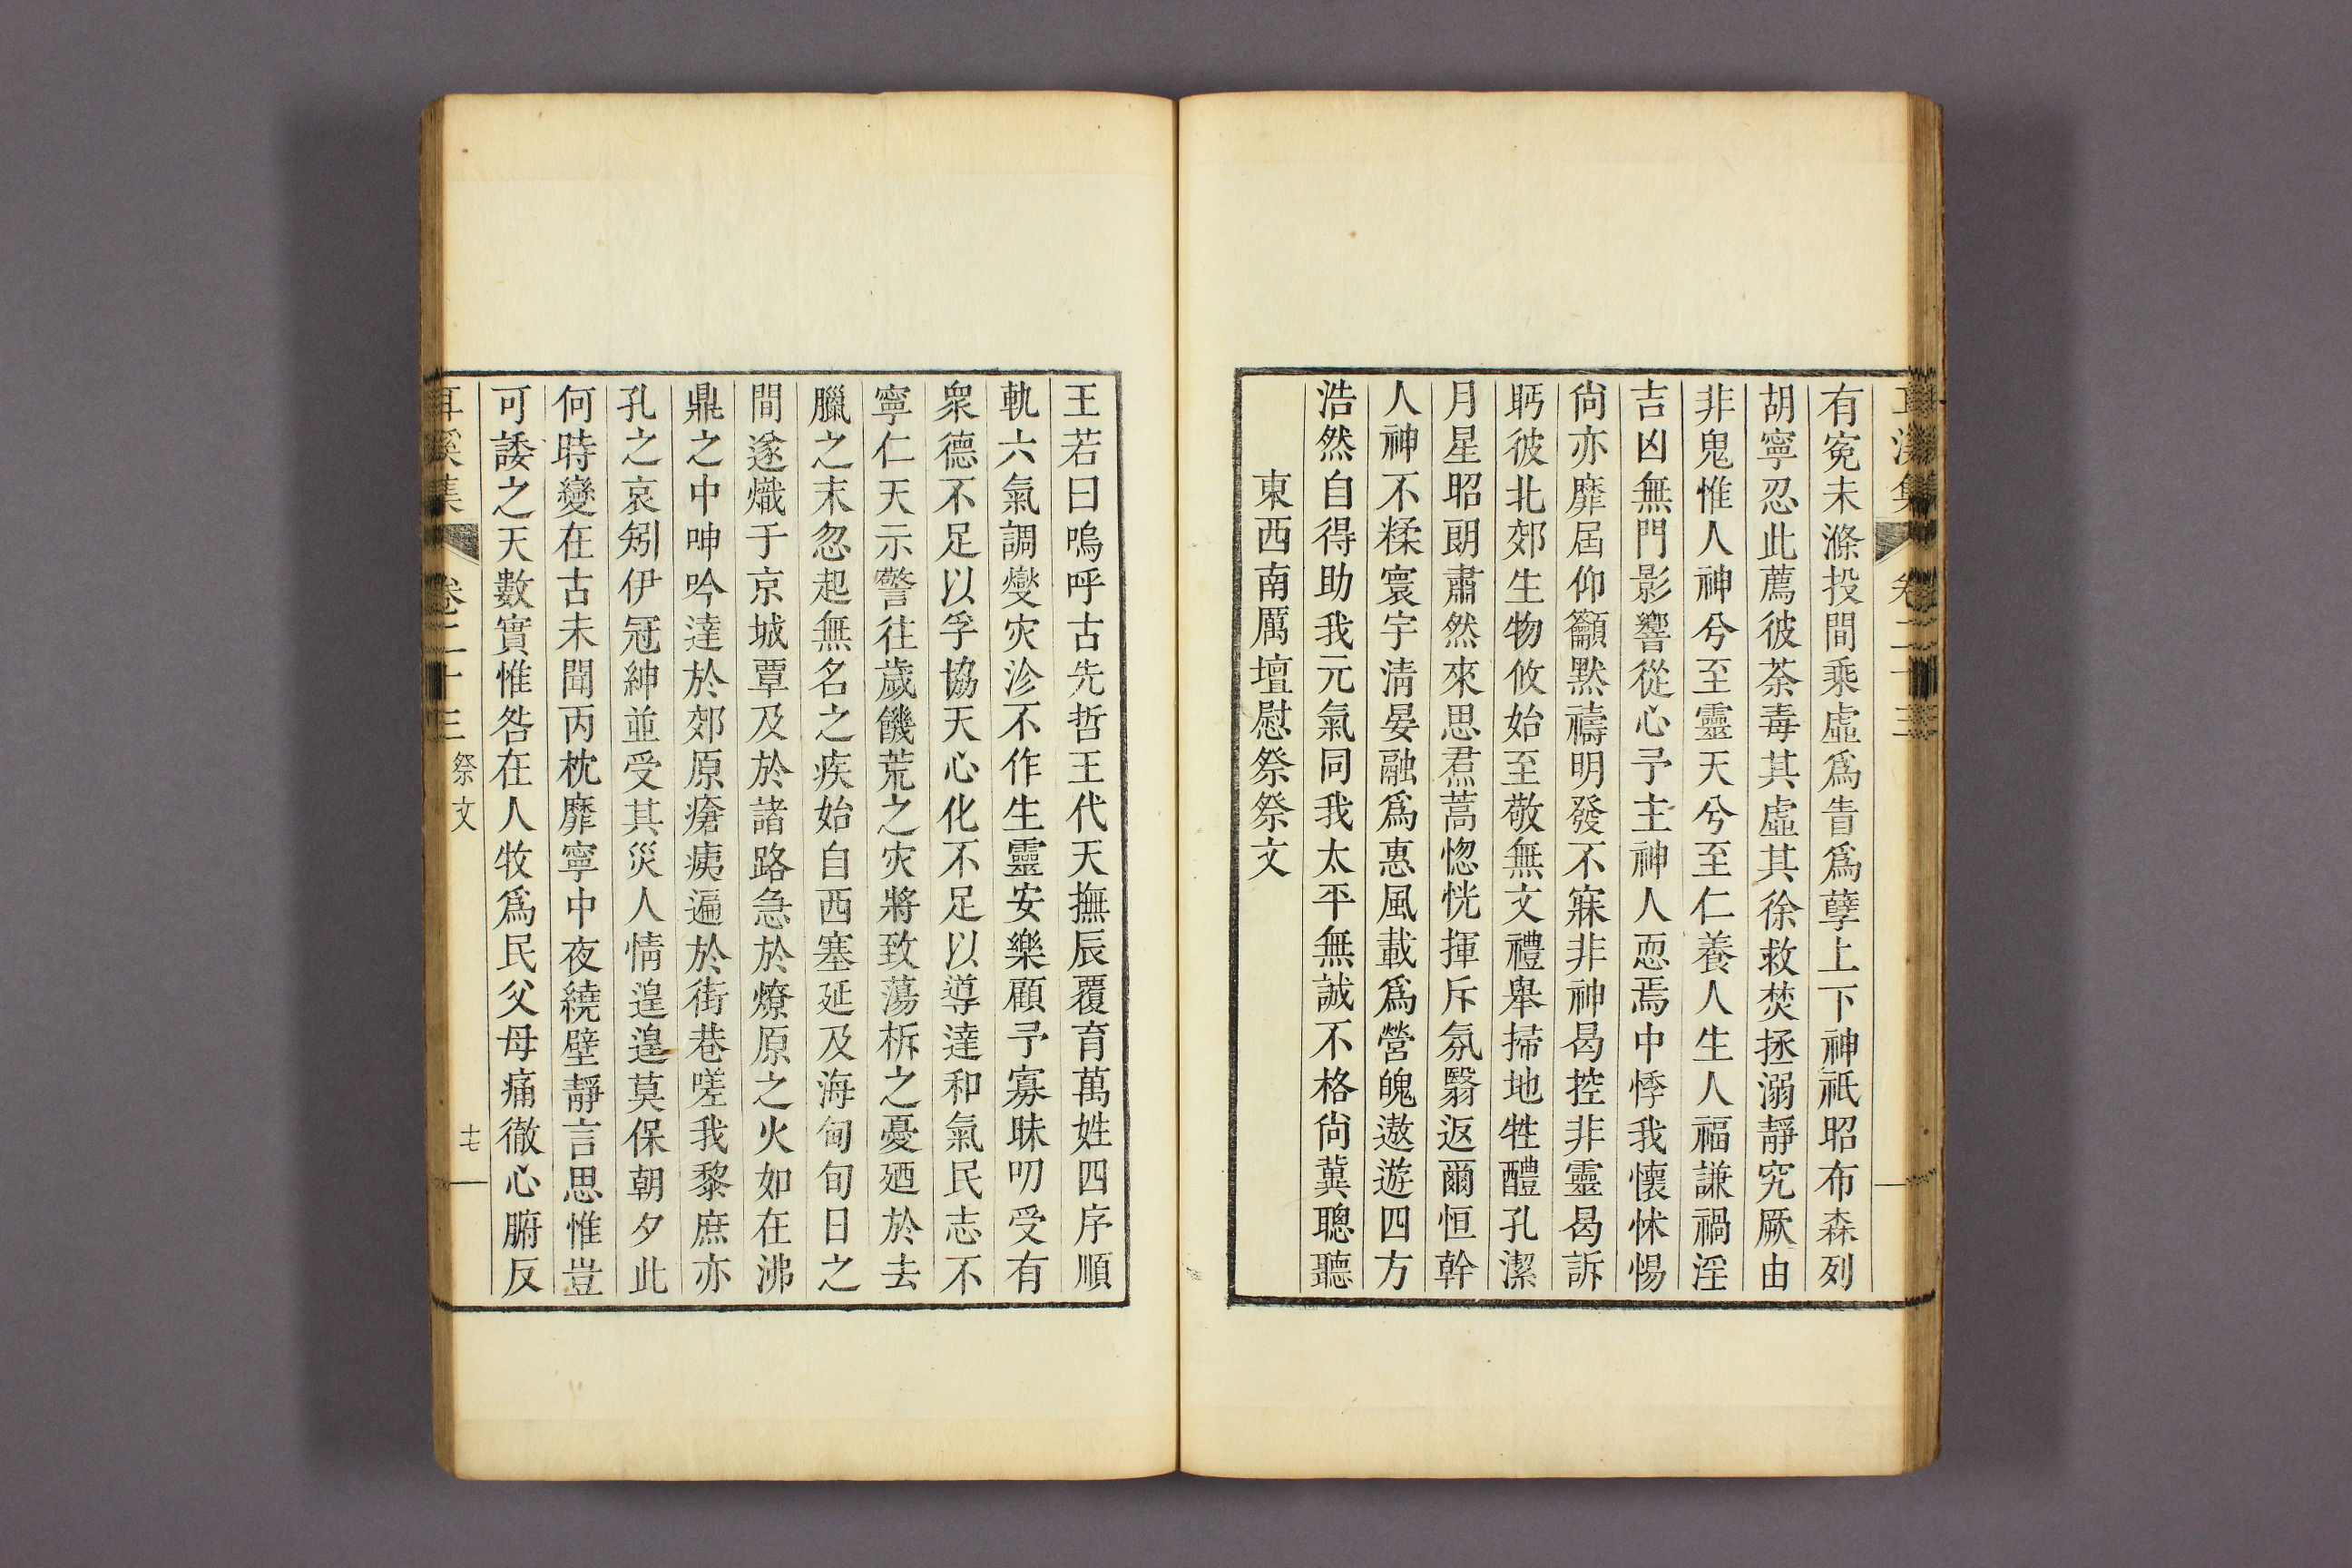 有寃未滌投間乘虛爲眚爲孽上下神祇昭布森列
胡寧忍此薦彼荼毒其虛其徐救焚拯溺靜究厥由
非鬼惟人神兮至靈天兮至仁養人生人福謙禍淫
吉凶無門影響從心予主神人恧焉中悸我懷怵惕
尙亦靡屆仰籲默禱明發不寐非神曷控非靈曷訴
眄彼北郊生物攸始至敬無文禮舉掃地牲醴孔潔
月星昭朗肅然來思焄蒿惚恍揮斥氛翳返爾恒幹
人神不糅寰宇淸晏融爲惠風載爲營魄遨遊四方
浩然自得助我元氣同我太平無誠不格尙冀聰聽
東西南厲壇慰祭祭文
王若曰嗚呼古先哲王代天撫辰覆育萬姓四序順
軌六氣調燮灾沴不作生靈安樂顧予寡昧叨受有
衆德不足以孚協天心化不足以導達和氣民志不
寧仁天示警往歲饑荒之灾將致蕩柝之憂廼於去
臘之末忽起無名之疾始自西塞延及海甸旬日之
間遂熾于京城覃及於諸路急於燎原之火如在沸
鼎之中呻吟達於郊原瘡痍遍於街巷嗟我黎庶亦
孔之哀矧伊冠紳並受其災人情遑遑莫保朝夕此
何時變在古未聞丙枕靡寧中夜繞壁靜言思惟豈
可諉之天數實惟咎在人牧爲民父母痛徹心腑反
耳溪集 卷二十三 祭文 十七